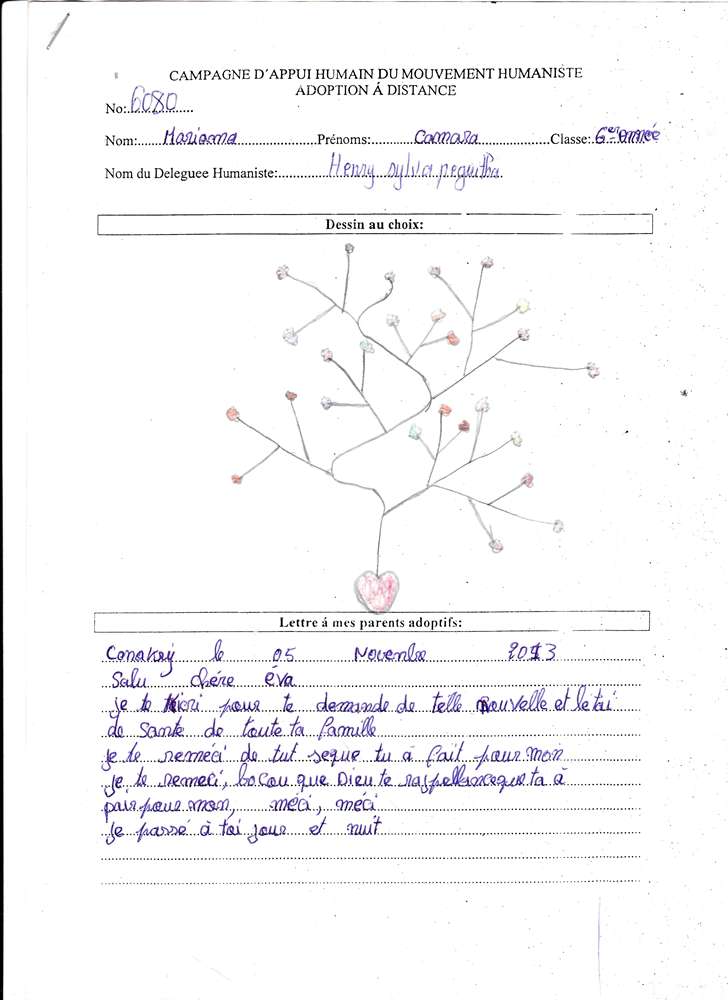 CAMPAGNE D'APPUI HUMAIN DU MOUVEMENT HUMANISTE
ADOPTION Á DISTANCE
No:6080
Nom: Mariama Prénoms: Camara Classe: 6em année
Nom du Deleguee Humaniste: Henry sylva
Dessin au choix:
Lettre á mes parents adoptifs:
Conakry le 05 Novembe 2013
Salu chére éva
je te pour te demande de telle nouvelle et
de Sante de toute ta famille
je te reméci de tut seque tu à fait pour mon
je te remeci, bocou que Dieu te à
pour mon, méci, méci
je passé à toi jour et nuit